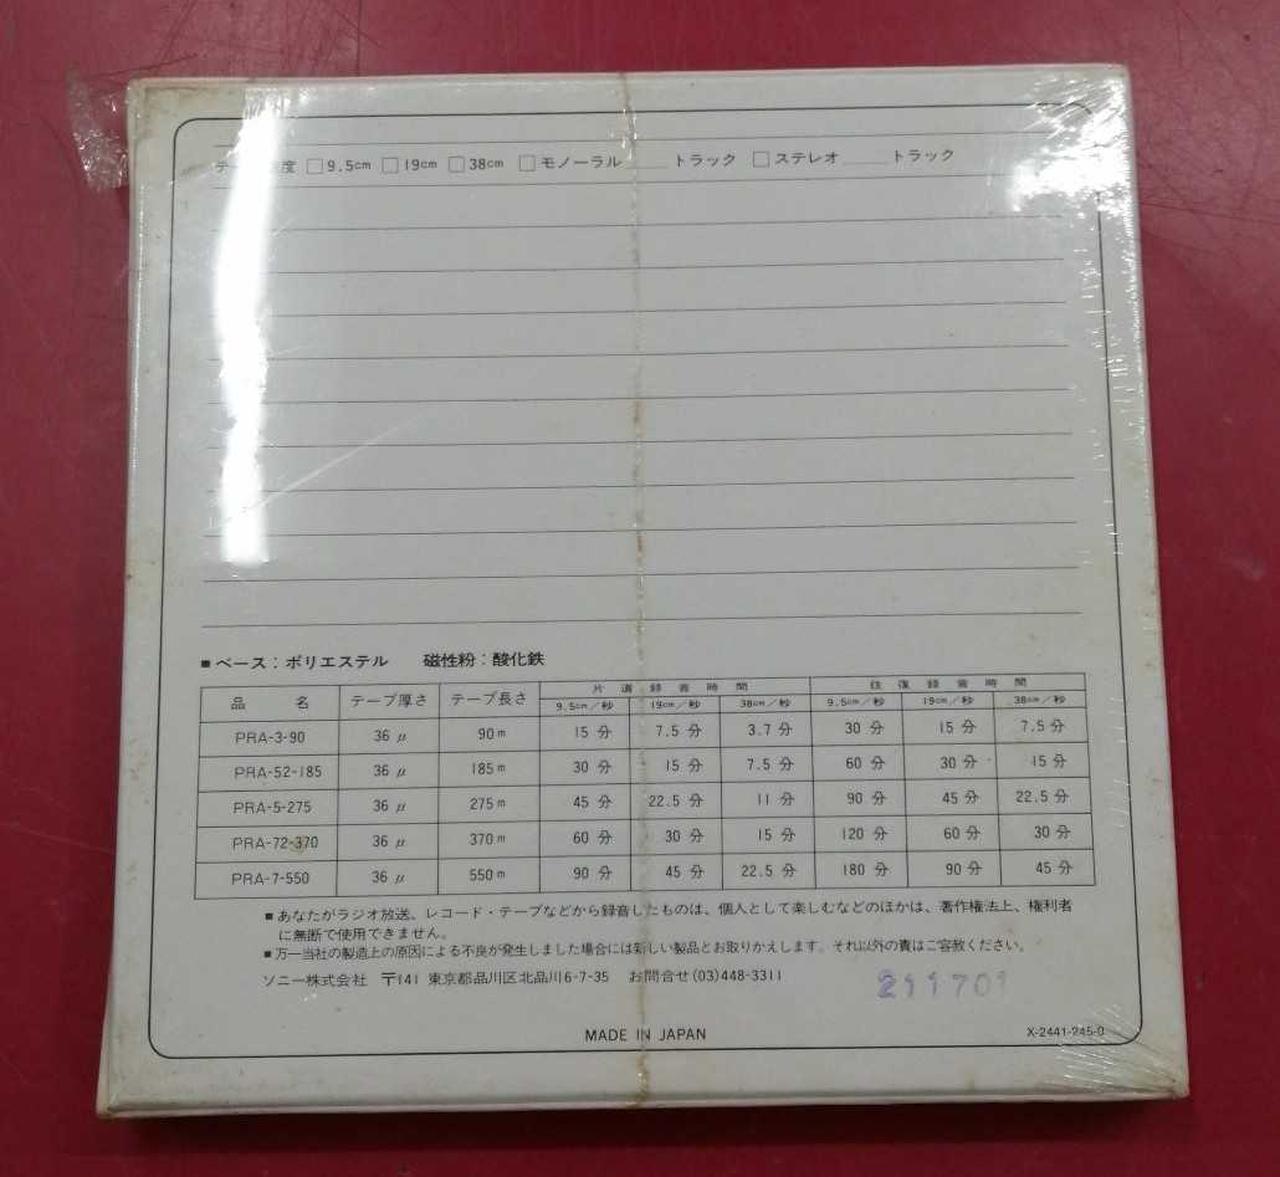 度 □9.5cm □19cm □38cm □モノーラル____トラック □ステレオ____トラック
■ベース：ポリエステル 磁性粉：酸化鉄
品名 テープ厚さ テープ長さ 片道録音時間 往復録音時間
9.5cm／秒 19cm／秒 38cm／秒 9.5cm／秒 19cm／秒 38cm／秒
PRA-3-90 36μ 90m 15分 7.5分 3.7分 30分 15分 7.5分
PRA-52-185 36μ 185m 30分 15分 7.5分 60分 30分 15分
PRA-5-275 36μ 275m 45分 22.5分 11分 90分 45分 22.5分
PRA-72-370 36μ 370m 60分 30分 15分 120分 60分 30分
PRA-7-550 36μ 550m 90分 45分 22.5分 180分 90分 45分
■あなたがラジオ放送、レコード・テープなどから録音したものは、個人として楽しむなどのほかは、著作権法上、権利者
に無断で使用できません。
■万一当社の製造上の原因による不良が発生しました場合には新しい製品とお取りかえします。それ以外の責はご容赦ください。
ソニー株式会社 〒141 東京都品川区北品川6-7-35 お問合せ(03)448-3311
211701
MADE IN JAPAN
X-2441-245-0